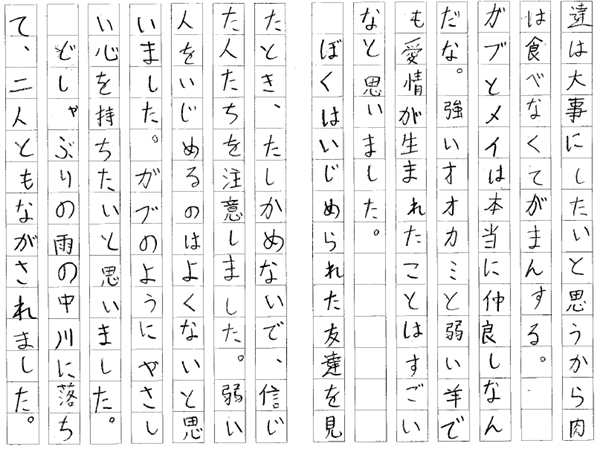 達は大事にしたいと思うから肉
は食べなくてがまんする。
ガブとメイは本当に仲良しなん
だな。強いオオカミと弱い羊で
も愛情が生まれたことはすごい
なと思いました。
ぼくはいじめられた友達を見
たとき、たしかめないで、信じ
た人たちを注意しました。弱い
人をいじめるのはよくないと思
いました。ガブのようにやさし
い心を持ちたいと思いました。
どしゃぶりの雨の中川に落ち
て、二人ともながされました。